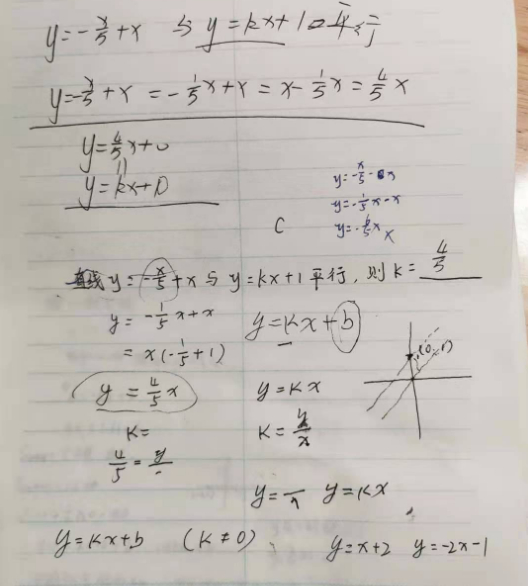 y=-x/5+x 与 y=kx+1 平行
y=-x/5+x = -1/5x+x = x-1/5x = 4/5x
y=4/5x+0
y=kx+0
y=-x/5-x
y=-1/5x-x
C
直线 y=-x/5+x 与 y=kx+1 平行,则 k= 4/5
y=-1/5x+x
y=kx+b
=x(-1/5+1)
(0,1)
y=4/5x
y=kx
k=
k=y/x
4/5=y/
y= y=kx
y=kx+b (k≠0)
y=x+2 y=-2x-1